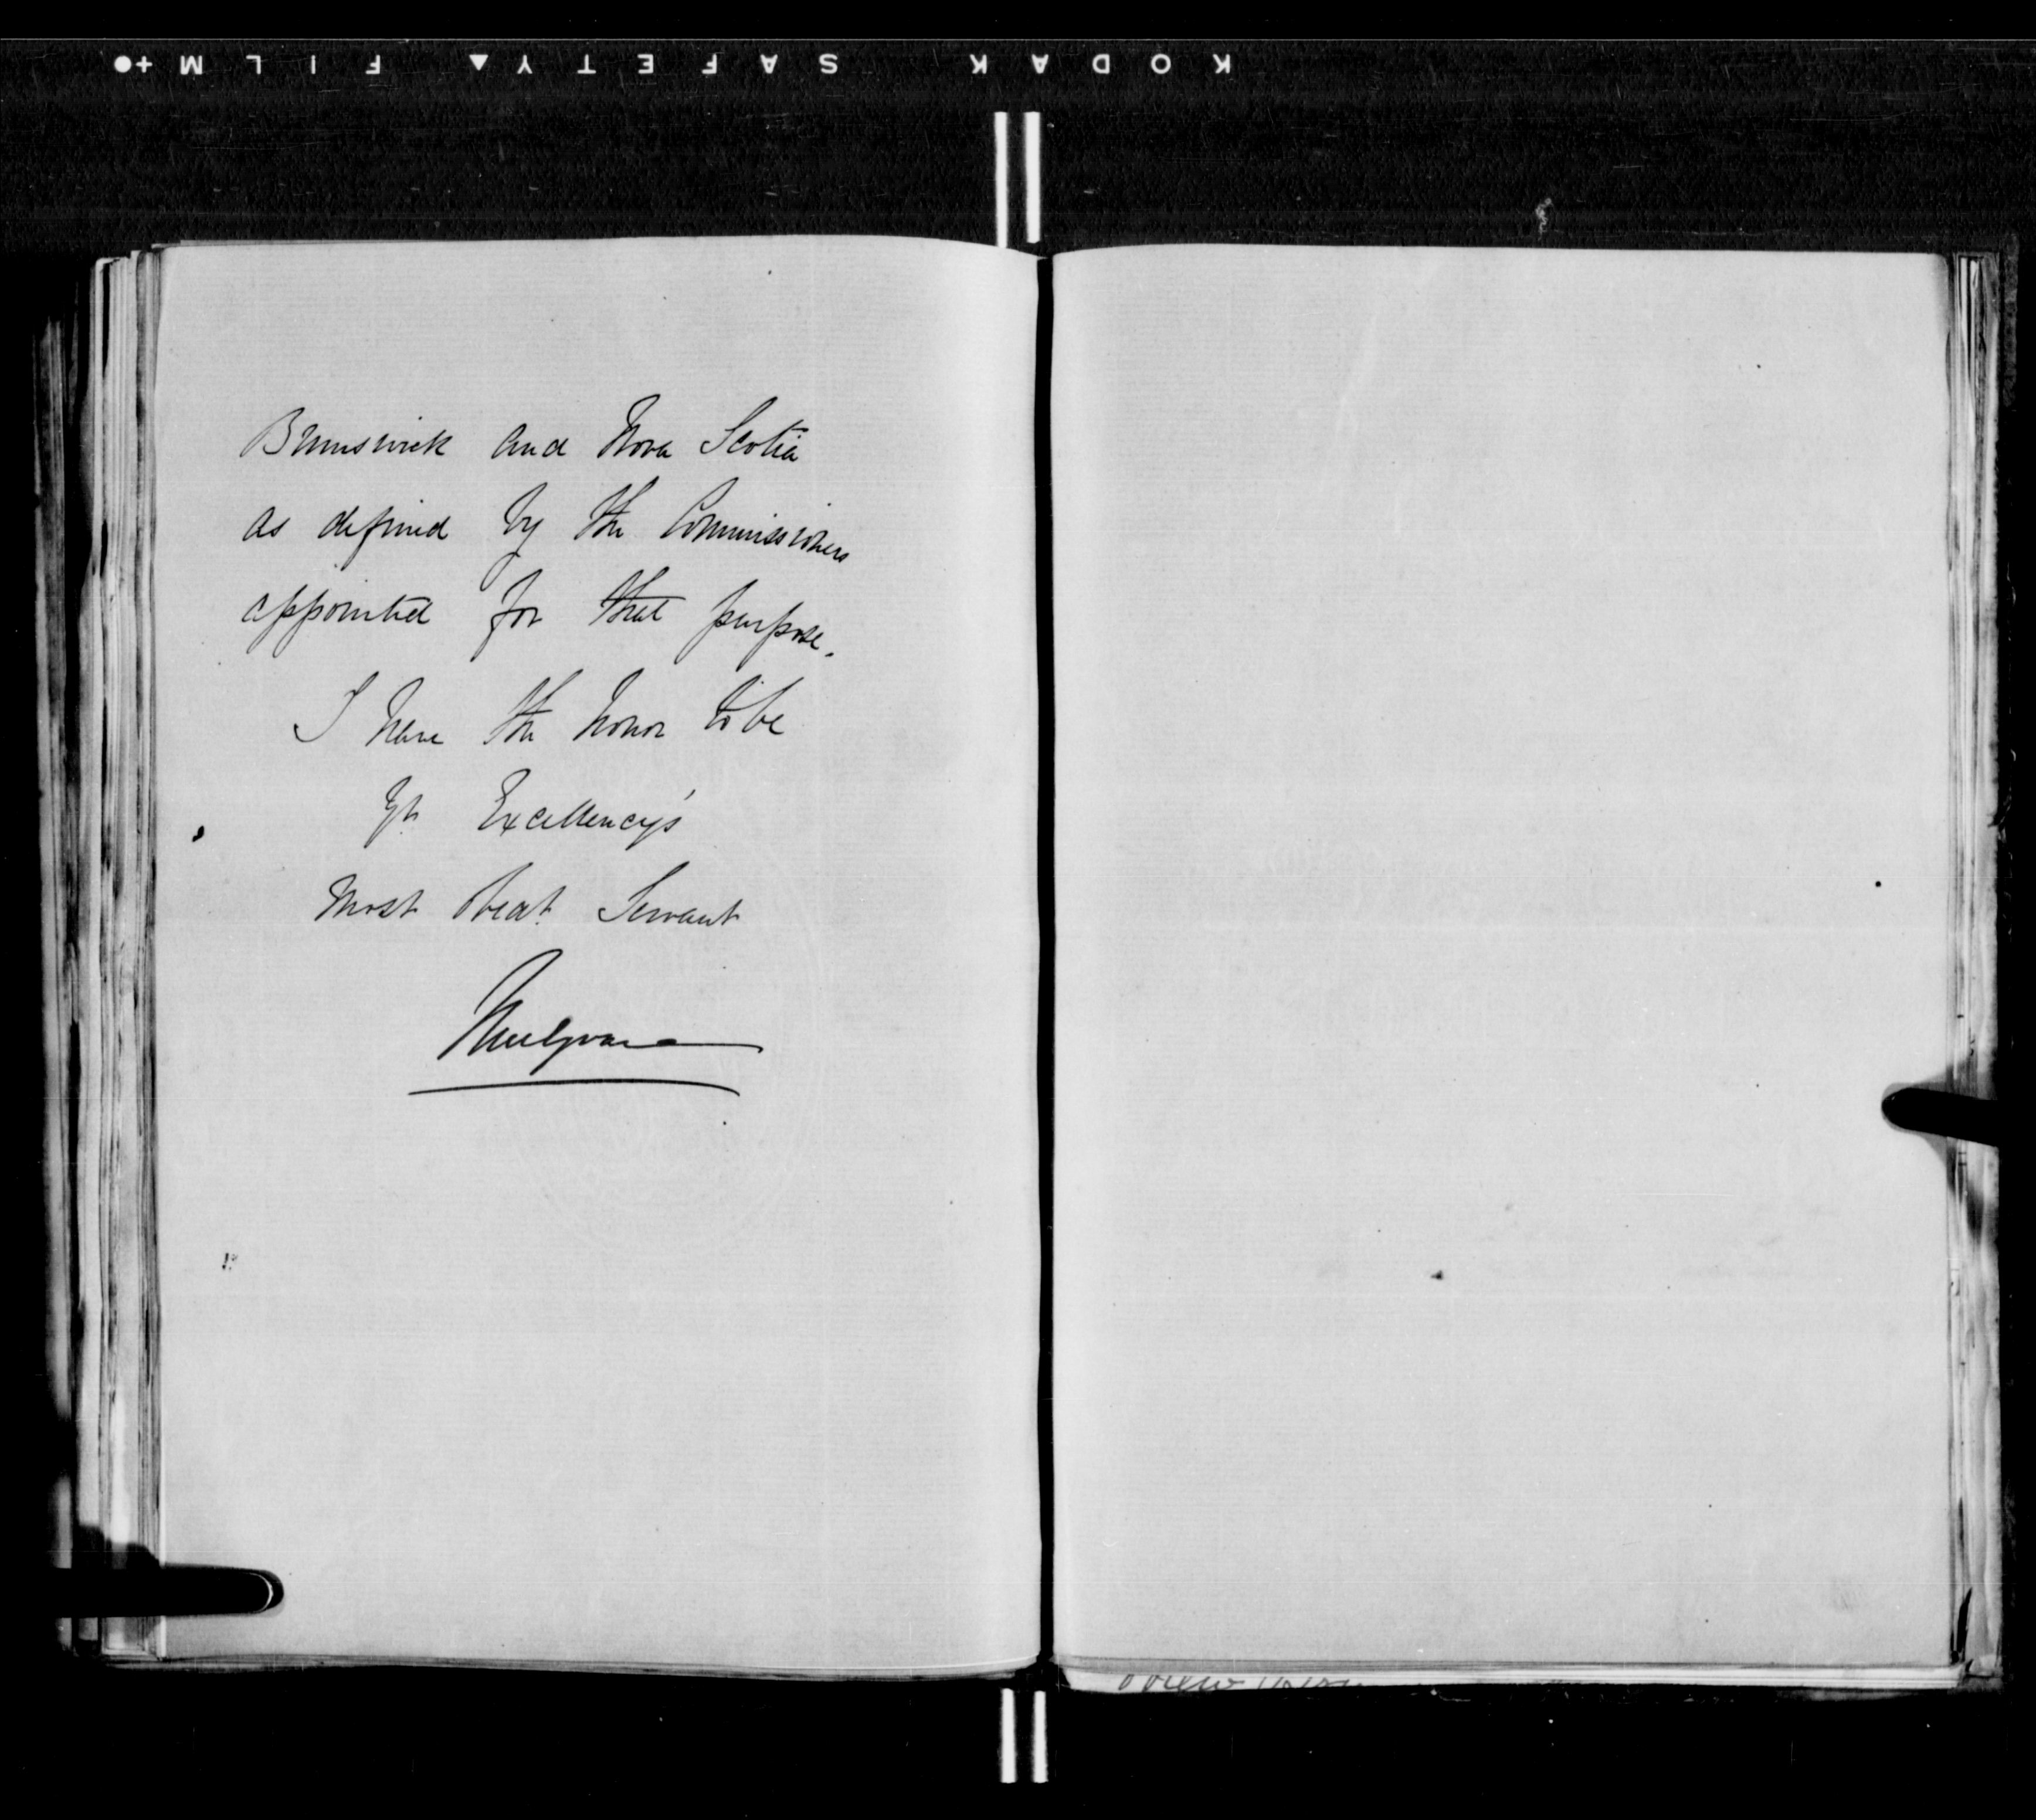 KODAK SAFETY FILM
Brunswick and Nova Scotia
as defined by the Commissioners
appointed for that purpose.
I have the honor to be
Yr Excellency's
Most Obedt. Servant
Mulgrave